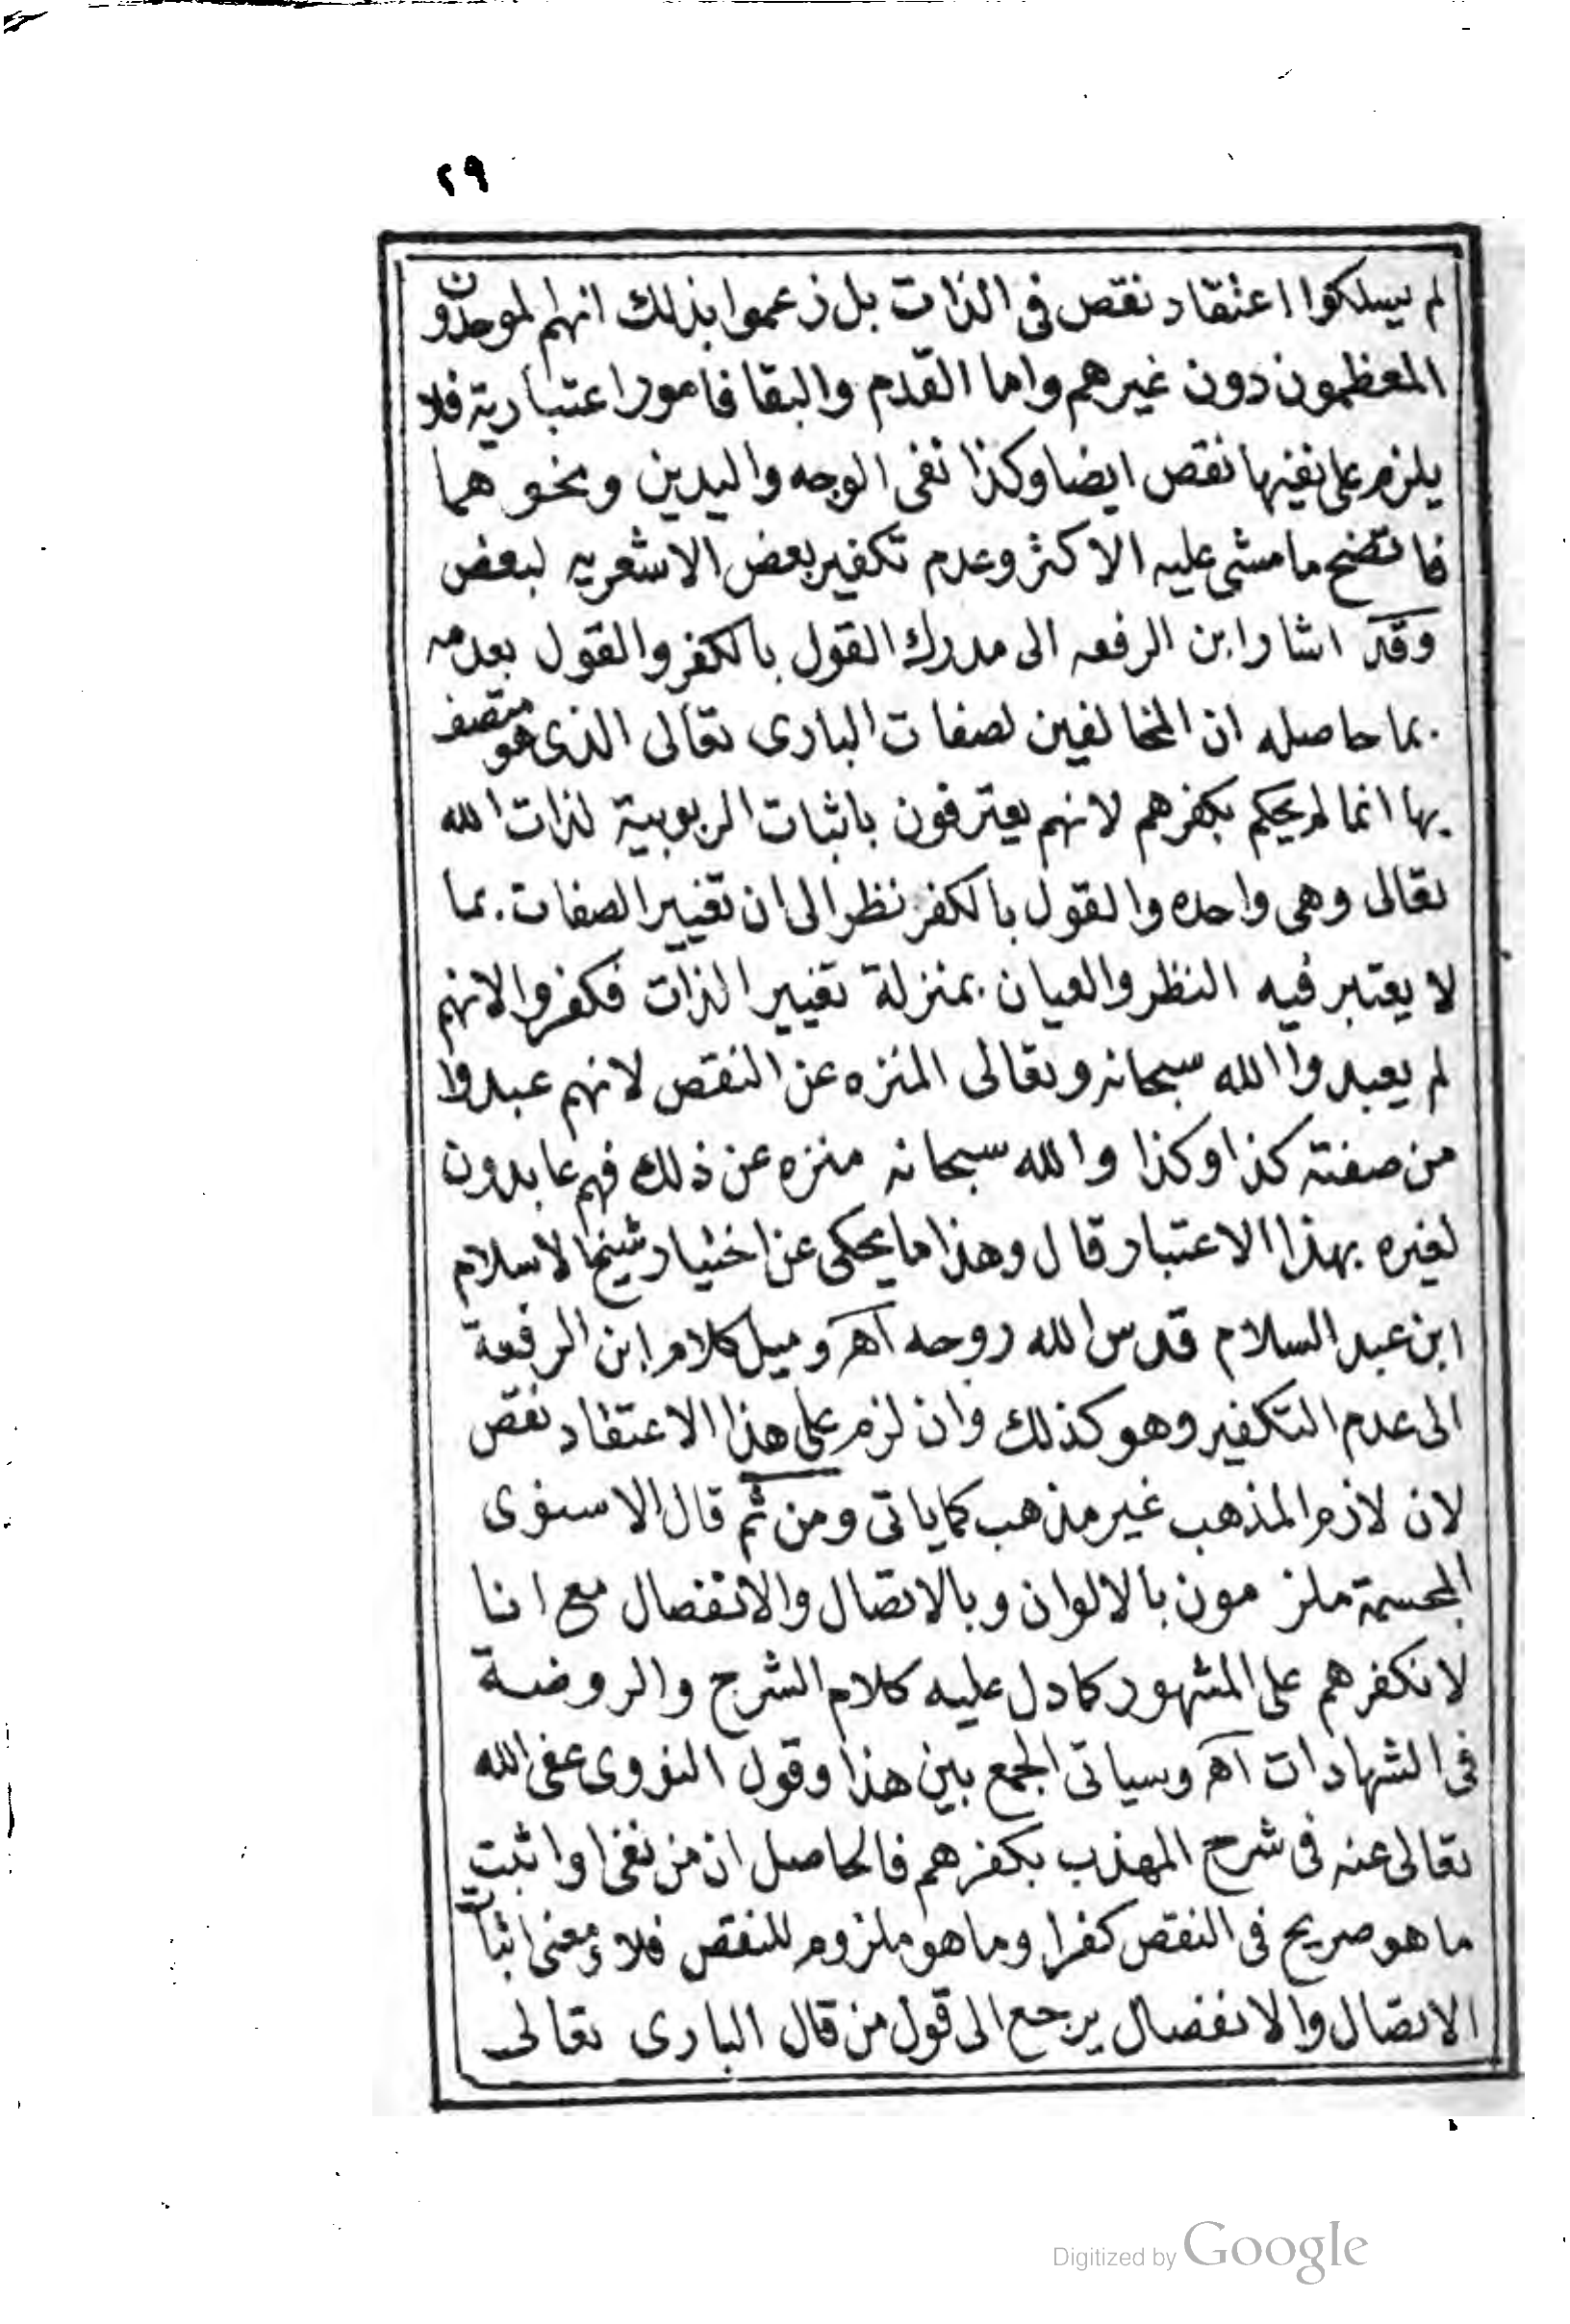 ٢٩
لم يسلكوا اعتقاد نقص فى الذات بل زعموا بذلك انهم الموحدون
المعظمون دون غيرهم واما القدم والبقا فامور اعتبارية فلا
يلزم على نفيها نقص ايضا وكذا نفى الوجه واليدين ونحوهما
فاتضح ما مشى عليه الاكثر وعدم تكفير بعض الاشعريه لبعض
وقد اشار ابن الرفعه الى مدرك القول بالكفر والقول بعدمه
بما حاصله ان المخالفين لصفات البارى تعالى الذى هو متصف
بها انما لم يحكم بكفرهم لانهم يعترفون باثبات الربوبية لذات الله
تعالى وهى واحده والقول بالكفر نظر الى ان تغيير الصفات بما
لا يعتبر فيه النظر والعيان بمنزلة تغيير الذات فكفروا لانهم
لم يعبدوا الله سبحانه وتعالى المنزه عن النقص لانهم عبدوا
من صفته كذا وكذا والله سبحانه منزه عن ذلك فهم عابدون
لغيره بهذا الاعتبار قال وهذا ما يحكى عن اختيار شيخ الاسلام
ابن عبد السلام قدس الله روحه اهـ وميل كلام ابن الرفعة
الى عدم التكفير وهو كذلك وان لزم على هذا الاعتقاد نقص
لان لازم المذهب غير مذهب كما ياتى ومن ثم قال الاسنوى
المجسمة ملزمون بالالوان وبالاتصال والانفصال مع انا
لا نكفرهم على المشهور كما دل عليه كلام الشرح والروضة
فى الشهادات اهـ وسياتى الجمع بين هذا وقول النووى عفى الله
تعالى عنه فى شرح المهذب بكفرهم فالحاصل ان من نفى او اثبت
ما هو صريح فى النقص كفر او ما هو ملزوم للنقص فلا ومعنى اثبات
الاتصال والانفصال يرجع الى قول من قال البارى تعالى
Digitized by Google